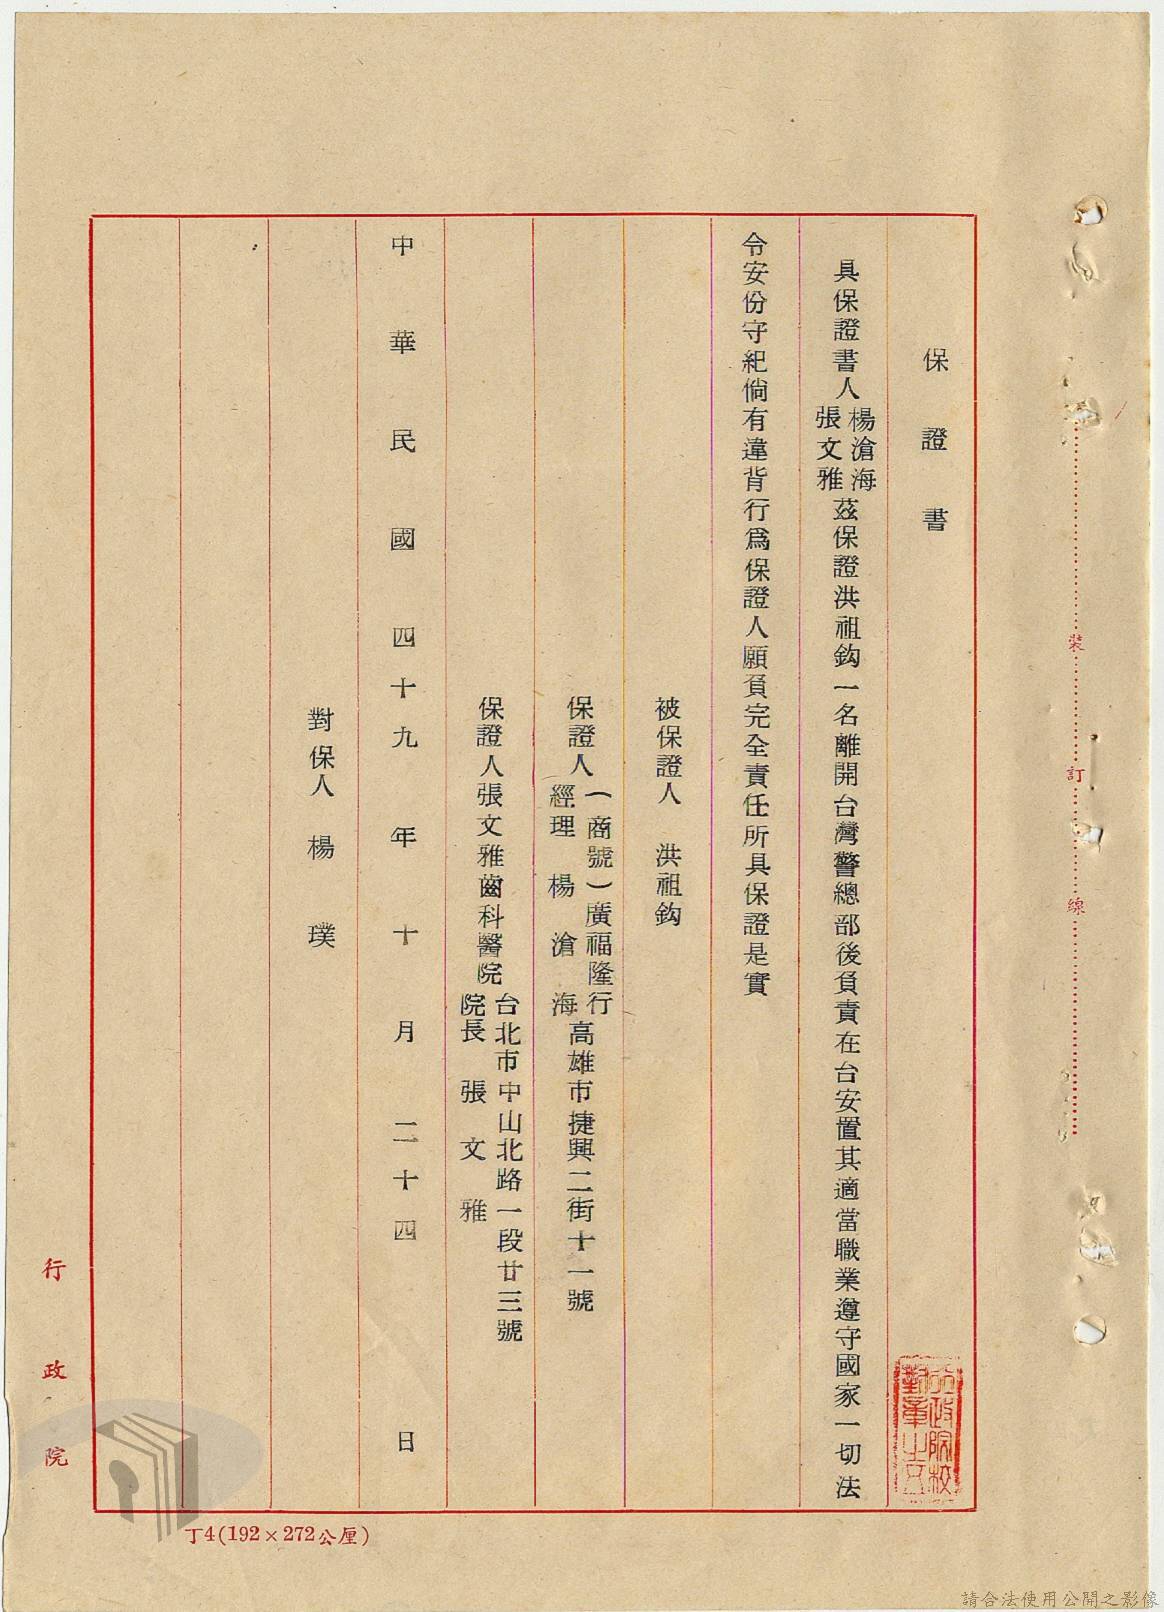 保證書
具保證書人楊滄海張文雅茲保證洪祖鈎一名離開台灣警總部後負責在台安置其適當職業遵守國家一切法
令安份守紀倘有違背行為保證人願負完全責任所具保證是實
被保證人 洪祖鈎
保證人(商號)廣福隆行
經理 楊滄海
高雄市捷興二街十一號
保證人張文雅齒科醫院
台北市中山北路一段廿三號
院長 張文雅
中華民國四十九年十月二十四日
對保人 楊璞
行政院校
對章之又
裝訂線
行政院
丁4(192×272公厘)
請合法使用公開之影像